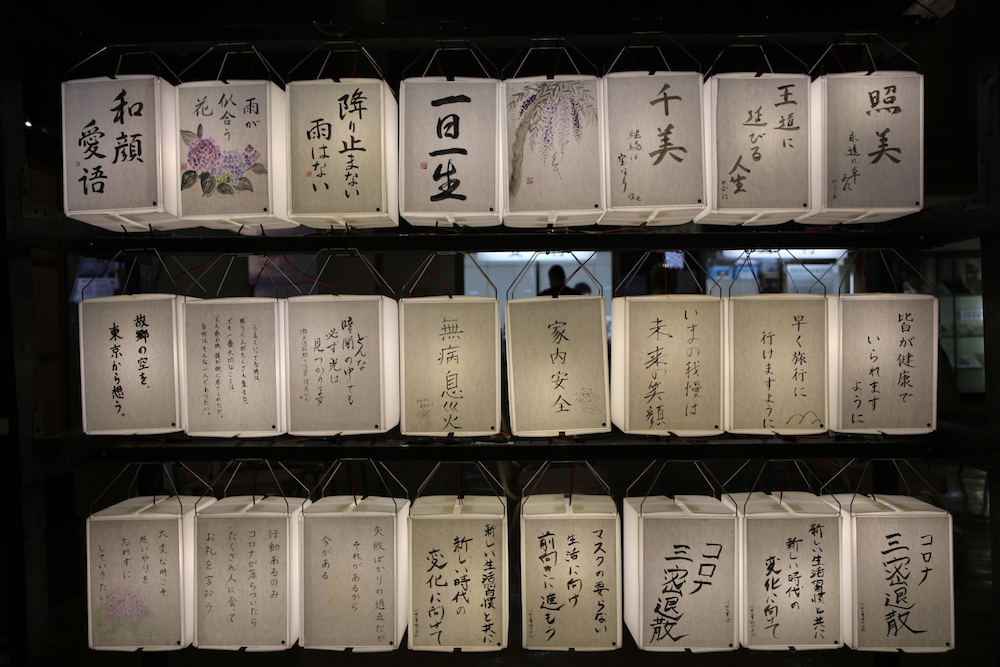 和顔
愛語
雨が
似合う
花
降り止まない
雨はない
一日一生
千美
王道に
延びる
人生
照美
故郷の空を、
東京から想う。
どんな
暗闇の中でも
必ず光は
見つかります
無病息災
家内安全
いまの我慢は
未来の笑顔
早く旅行に
行けますように
皆が健康で
いられます
ように
大変な時こそ
思いやりを
忘れずに
していきたい
行動あるのみ
コロナが落ちついたら
たくさん人に会って
お礼を言おう
失敗ばかりの過去だが
それがあるから
今がある
新しい生活習慣と共に
新しい時代の
変化に向けて
マスクの要らない
生活に向け
前向きに進もう
コロナ
三密退散
新しい生活習慣と共に
新しい時代の
変化に向けて
コロナ
三密退散